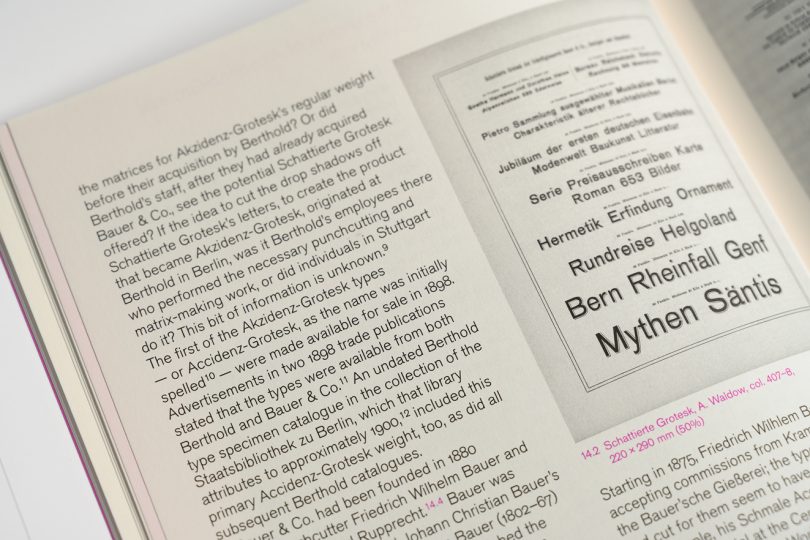 the matrices for Akzidenz-Grotesk's regular weight
before their acquisition by Berthold? Or did
Berthold's staff, after they had already acquired
Bauer & Co., see the potential Schattierte Grotesk
offered? If the idea to cut the drop shadows off
Schattierte Grotesk's letters, to create the product
that became Akzidenz-Grotesk, originated at
Berthold in Berlin, was it Berthold's employees there
who performed the necessary punchcutting and
matrix-making work, or did individuals in Stuttgart
do it? This bit of information is unknown.⁹
The first of the Akzidenz-Grotesk types
— or Accidenz-Grotesk, as the name was initially
spelled¹⁰ — were made available for sale in 1898.
Advertisements in two 1898 trade publications
stated that the types were available from both
Berthold and Bauer & Co.¹¹ An undated Berthold
type specimen catalogue in the collection of the
Staatsbibliothek zu Berlin, which that library
attributes to approximately 1900,¹² included this
primary Accidenz-Grotesk weight, too, as did all
subsequent Berthold catalogues.
& Co. had been founded in 1880
Friedrich Wilhelm Bauer and
Rupprecht.¹⁴·⁴ Bauer was
Johann Christian Bauer's
Bauer (1802–67)
the
Pietro Sammlung ausgewählter Musikalien Barzo
Charakteristik älterer Rechtsbücher
Jubiläum der ersten deutschen Eisenbahn
Modenwelt Baukunst Litteratur
Serie Preisausschreiben Karte
Roman 653 Bilder
Hermetik Erfindung Ornament
Rundreise Helgoland
Bern Rheinfall Genf
Mythen Säntis
14.2 Schattierte Grotesk, A. Waldow, col. 407–8,
220 × 290 mm (50%)
Starting in 1875, Friedrich Wilhelm
accepting commissions from
the Bauer'sche Gießerei; the
cut for them seem to have
his Schmale
at the